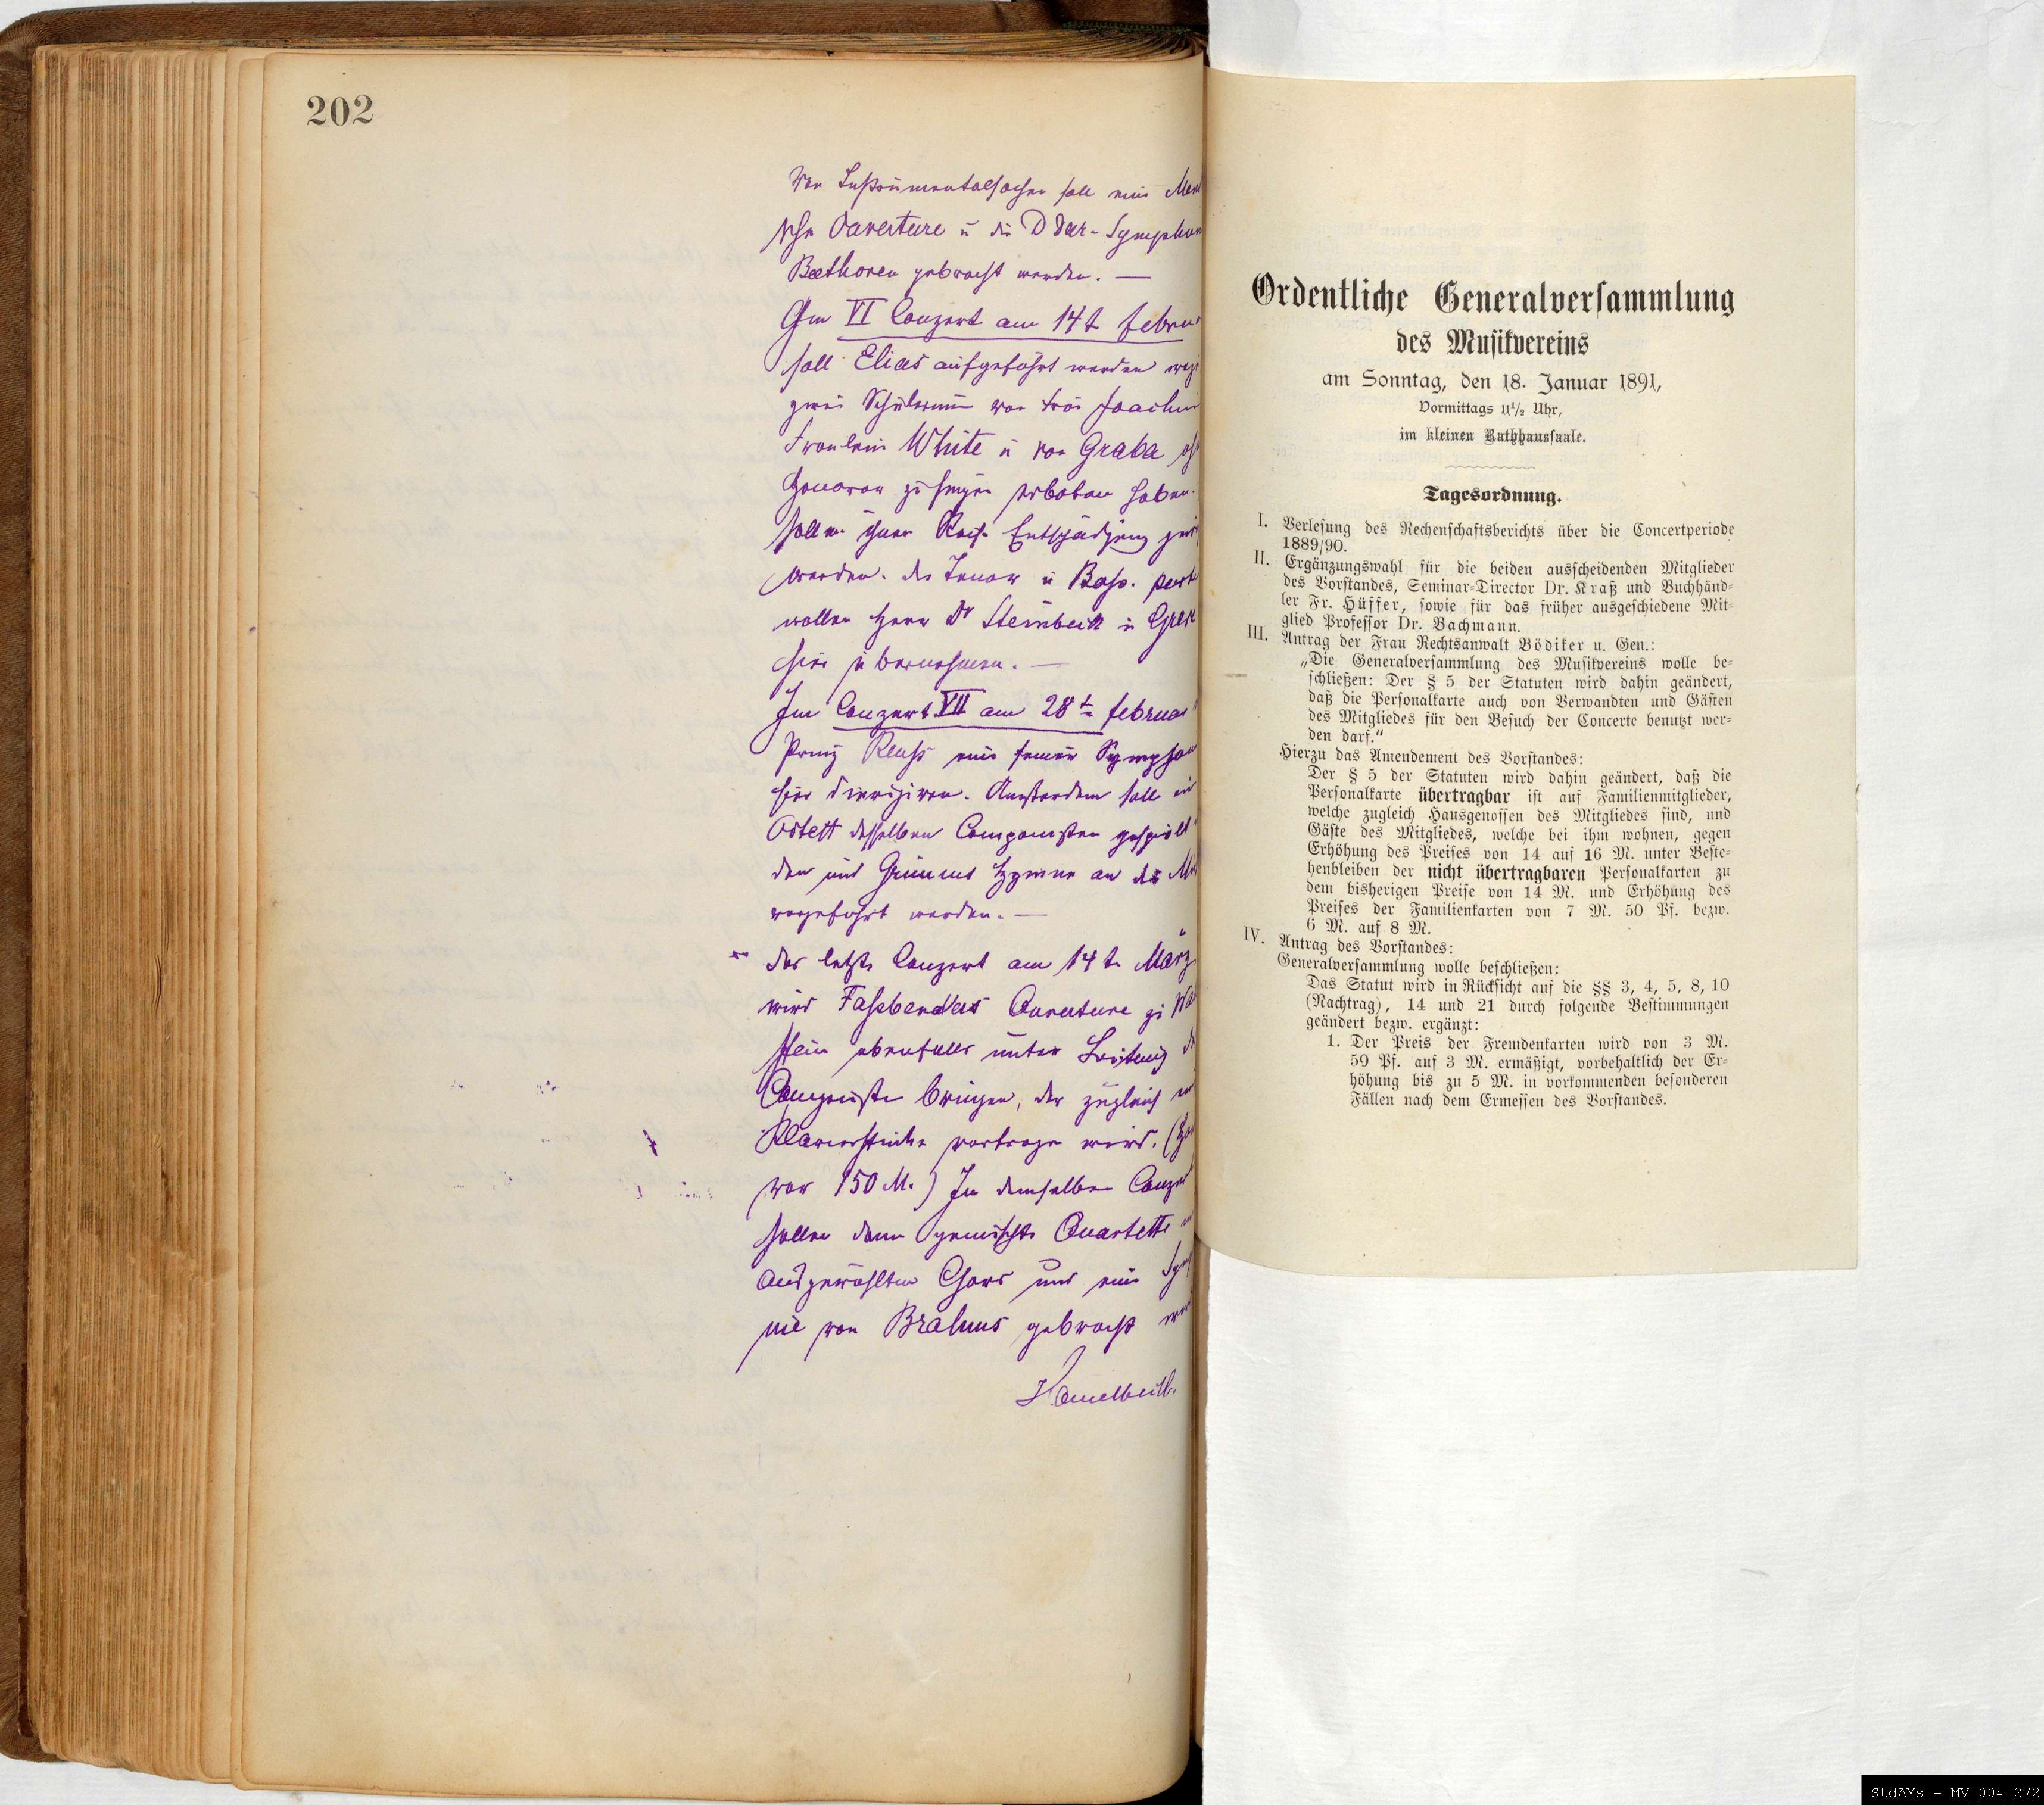 202
Von Instrumentalsachen soll eine
Ouverture u die D Dur-
Beethoven gebracht werden. —
Im VI Conzert am 14t
soll Elias aufgeführt werden
zwei Schülerinn von Frau
Fräulein White u von Graba
Honorar zu singen erboten haben.
sollen ihnen Reise Entschädigung
werden. die Tenor u Bass.
wollen Herr Dr Steinbeck u
hier übernehmen. —
Im Conzert VII am 28t
Prinz Reuss eine seiner
hier dirigiren. Ausserdem soll
Octett desselben Componisten
den und Grimms Hymne an die
vorgeführt werden. —
das letzte Conzert am 14t März
wird Ouverture zu
stein ebenfalls unter Leitung
Componisten bringen, der zugleich
Klavierstücke vortragen wird.
rar 150 M.) In demselben
sollen dann gemischte Quartette
ausgewählten Chors und eine
nie von Brahms gebracht
Ordentliche Generalversammlung
des Musikvereins
am Sonntag, den 18. Januar 1891,
Vormittags 11½ Uhr,
im kleinen Rathhaussaale.
Tagesordnung.
I. Verlesung des Rechenschaftsberichts über die Concertperiode
1889/90.
II. Ergänzungswahl für die beiden ausscheidenden Mitglieder
des Vorstandes, Seminar-Director Dr. Kraß und Buchhänd-
ler Fr. Hüffer, sowie für das früher ausgeschiedene Mit-
glied Professor Dr. Bachmann.
III. Antrag der Frau Rechtsanwalt Bödiker u. Gen.:
„Die Generalversammlung des Musikvereins wolle be-
schließen: Der § 5 der Statuten wird dahin geändert,
daß die Personalkarte auch von Verwandten und Gästen
des Mitgliedes für den Besuch der Concerte benutzt wer-
den darf.“
Hierzu das Amendement des Vorstandes:
Der § 5 der Statuten wird dahin geändert, daß die
Personalkarte übertragbar ist auf Familienmitglieder,
welche zugleich Hausgenossen des Mitgliedes sind, und
Gäste des Mitgliedes, welche bei ihm wohnen, gegen
Erhöhung des Preises von 14 auf 16 M. unter Beste-
henbleiben der nicht übertragbaren Personalkarten zu
dem bisherigen Preise von 14 M. und Erhöhung des
Preises der Familienkarten von 7 M. 50 Pf. bezw.
6 M. auf 8 M.
IV. Antrag des Vorstandes:
Generalversammlung wolle beschließen:
Das Statut wird in Rücksicht auf die §§ 3, 4, 5, 8, 10
(Nachtrag), 14 und 21 durch folgende Bestimmungen
geändert bezw. ergänzt:
1. Der Preis der Fremdenkarten wird von 3 M.
59 Pf. auf 3 M. ermäßigt, vorbehaltlich der Er-
höhung bis zu 5 M. in vorkommenden besonderen
Fällen nach dem Ermessen des Vorstandes.
StdAMs - MV_004_272